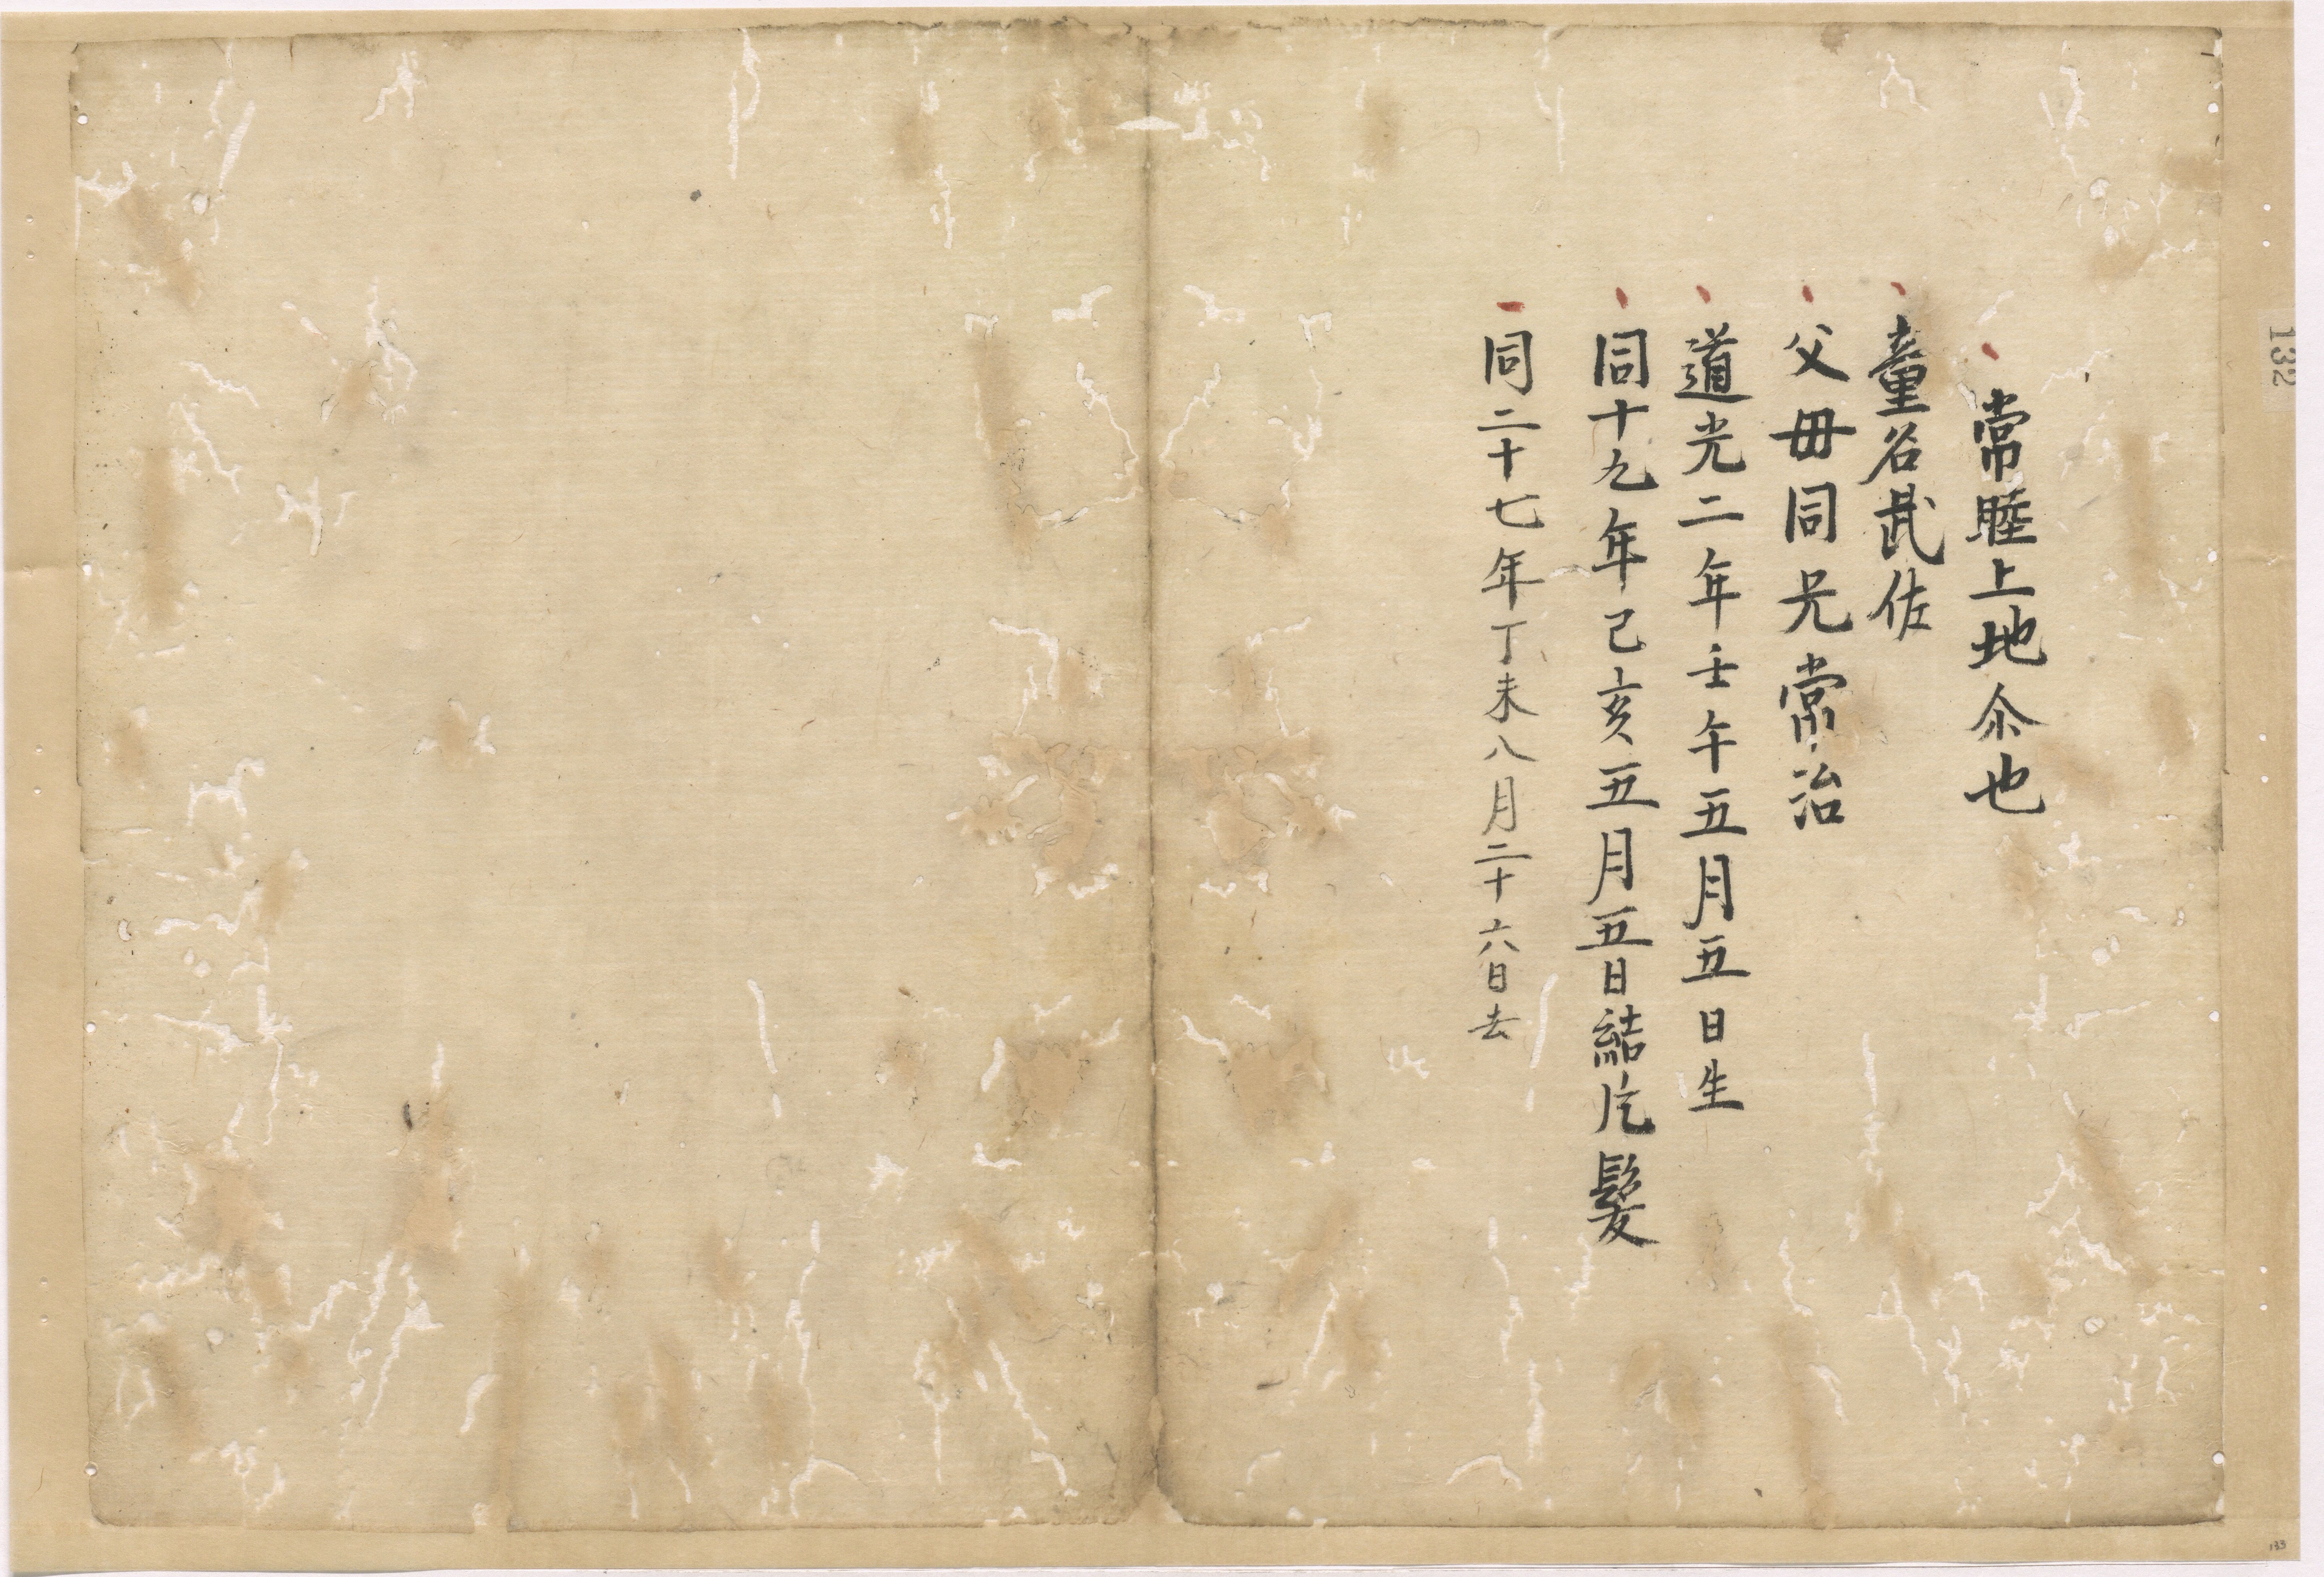 常睦上地尒也
童名武佐
父毋同兄常治
道光二年壬午五月五日生
同十九年己亥五月五日結片髪
同二十七年丁未八月二十六日去
132
133